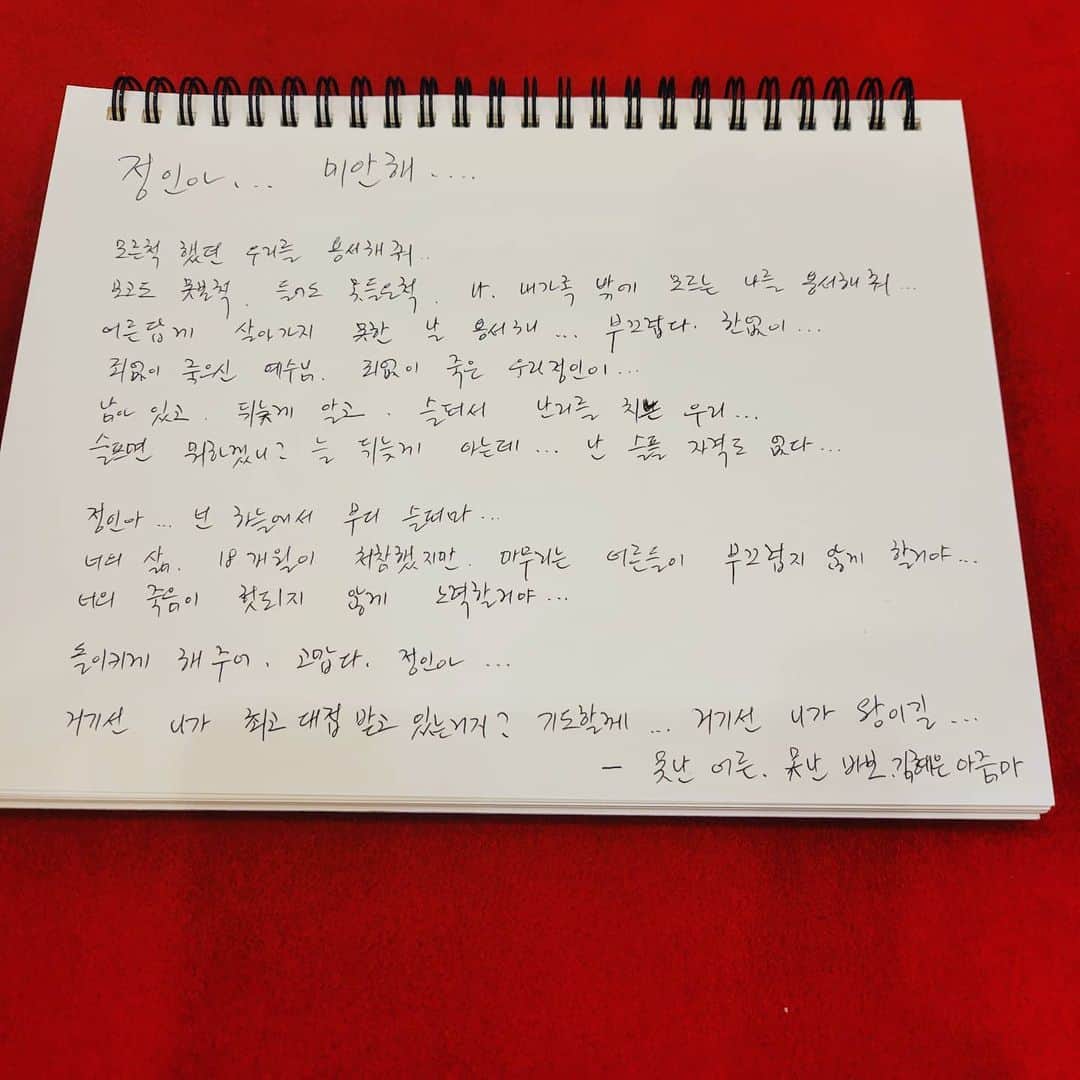 정인아... 미안해....
모른척 했던 우리를 용서해 줘..
보고도 못본척. 들어도 못들은척. 나. 내가족 밖에 모르는 나를 용서해 줘...
어른답게 살아가지 못한 날 용서해... 부끄럽다. 한없이...
죄없이 죽으신 예수님. 죄없이 죽은 우리정인이...
남아 있고. 뒤늦게 알고. 슬퍼서 난리를 치는 우리...
슬프면 뭐하겠니? 늘 뒤늦게 아는데... 난 슬플 자격도 없다...
정인아... 넌 하늘에서 부디 슬퍼마...
너의 삶. 18개월이 처참했지만. 마무리는 어른들이 부끄럽지 않게 할거야...
너의 죽음이 헛되지 않게 노력할거야...
돌이키게 해 주어. 고맙다. 정인아...
거기선 니가 최고 대접 받고 있는거지? 기도할께... 거기선 니가 왕이길...
- 못난 어른. 못난 바보. 김혜은 아줌마